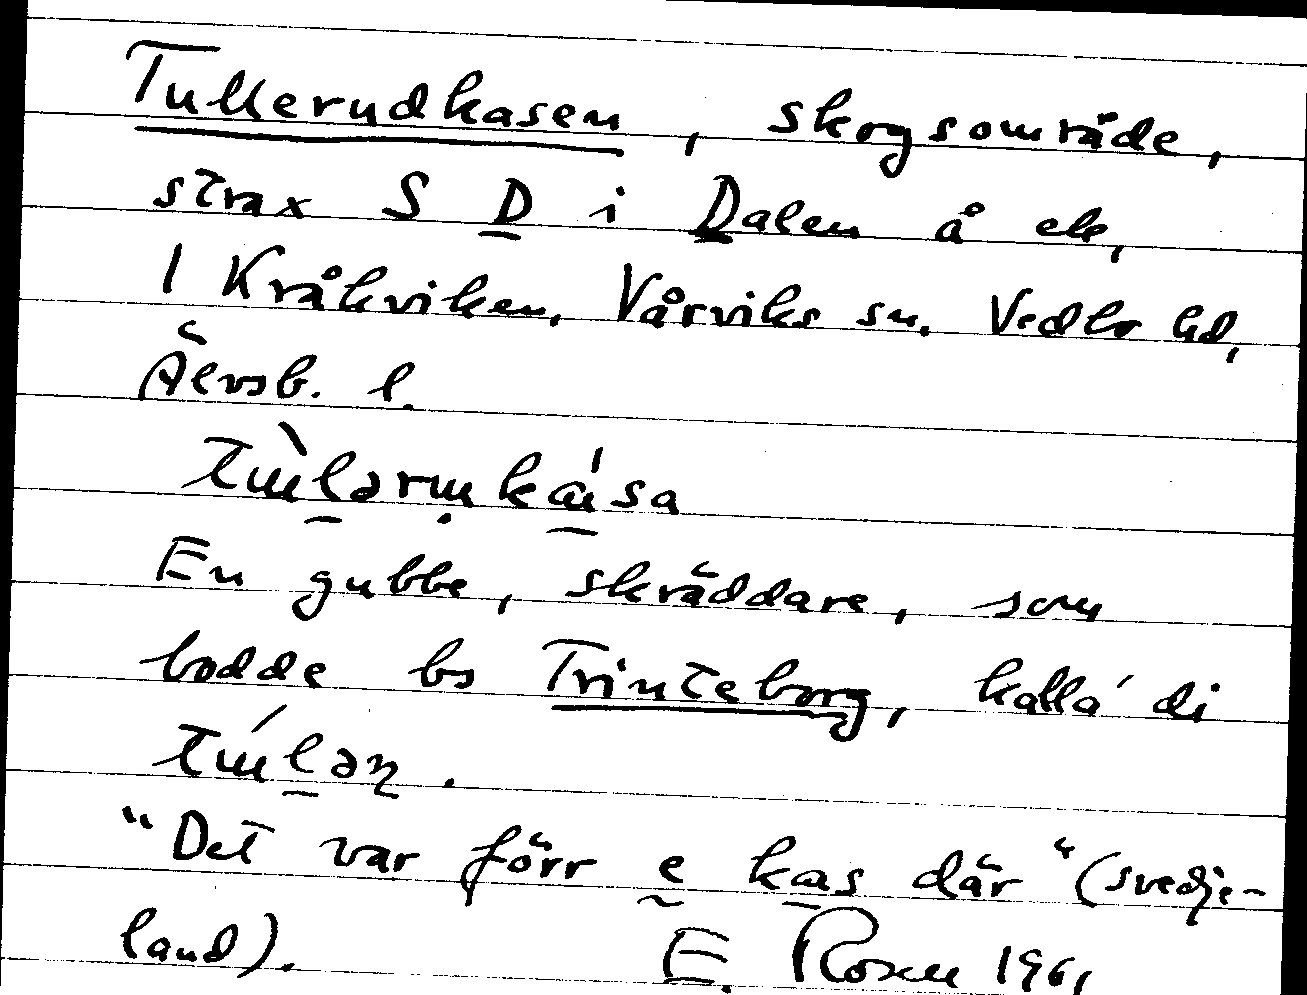 Tullerudkasen, skogsområde,
strax S D i Dalen å ek,
1 Kråkviken, Vårviks sn. Vedbo hd,
Älvsb. l.
En gubbe, skräddare, som
bodde hs Trinteborg, kalla' di
"Det var förr e kas där" (svedje-
land). E. Rosen 1961